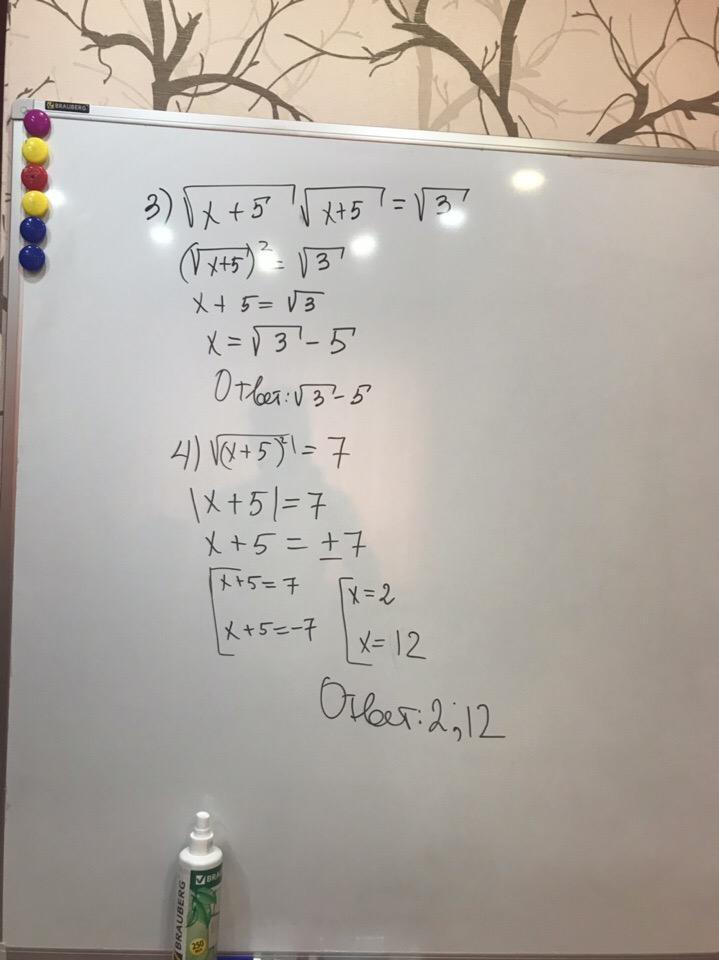 BRAUBERG
3) √(x+5) √(x+5) = √3
(√(x+5))² = √3
x + 5 = √3
x = √3 - 5
Ответ: √3 - 5
4) √((x+5)²) = 7
|x+5| = 7
x + 5 = ±7
[x+5=7 [x=2
x+5=-7 x=12
Ответ: 2; 12
BRAUBERG
250